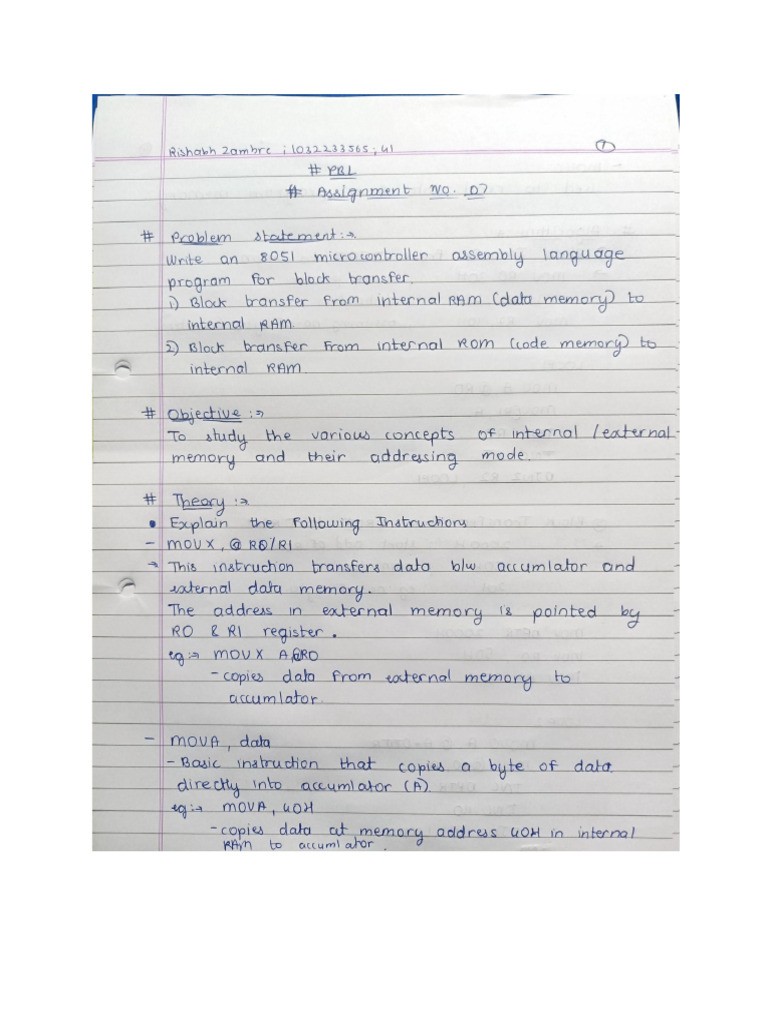 Rishabh Zambre ; 1032233565 ; 41
1
# PBL
# Assignment No. 07
# Problem statement :→
Write an 8051 microcontroller assembly language
program for block transfer.
1) Block transfer from internal RAM (data memory) to
internal RAM.
2) Block transfer from internal ROM (code memory) to
internal RAM.
# Objective :→
To study the various concepts of internal / external
memory and their addressing mode.
# Theory :→
• Explain the following Instructions
- MOVX, @ R0/R1
→ This instruction transfers data b/w accumlator and
external data memory.
The address in external memory is pointed by
R0 & R1 register.
eg :→ MOVX A,@R0
- copies data from external memory to
accumlator.
- MOVA, data
- Basic instruction that copies a byte of data
directly into accumlator (A)
eg :→ MOVA, 40H
- copies data at memory address 40H in internal
RAM to accumlator.